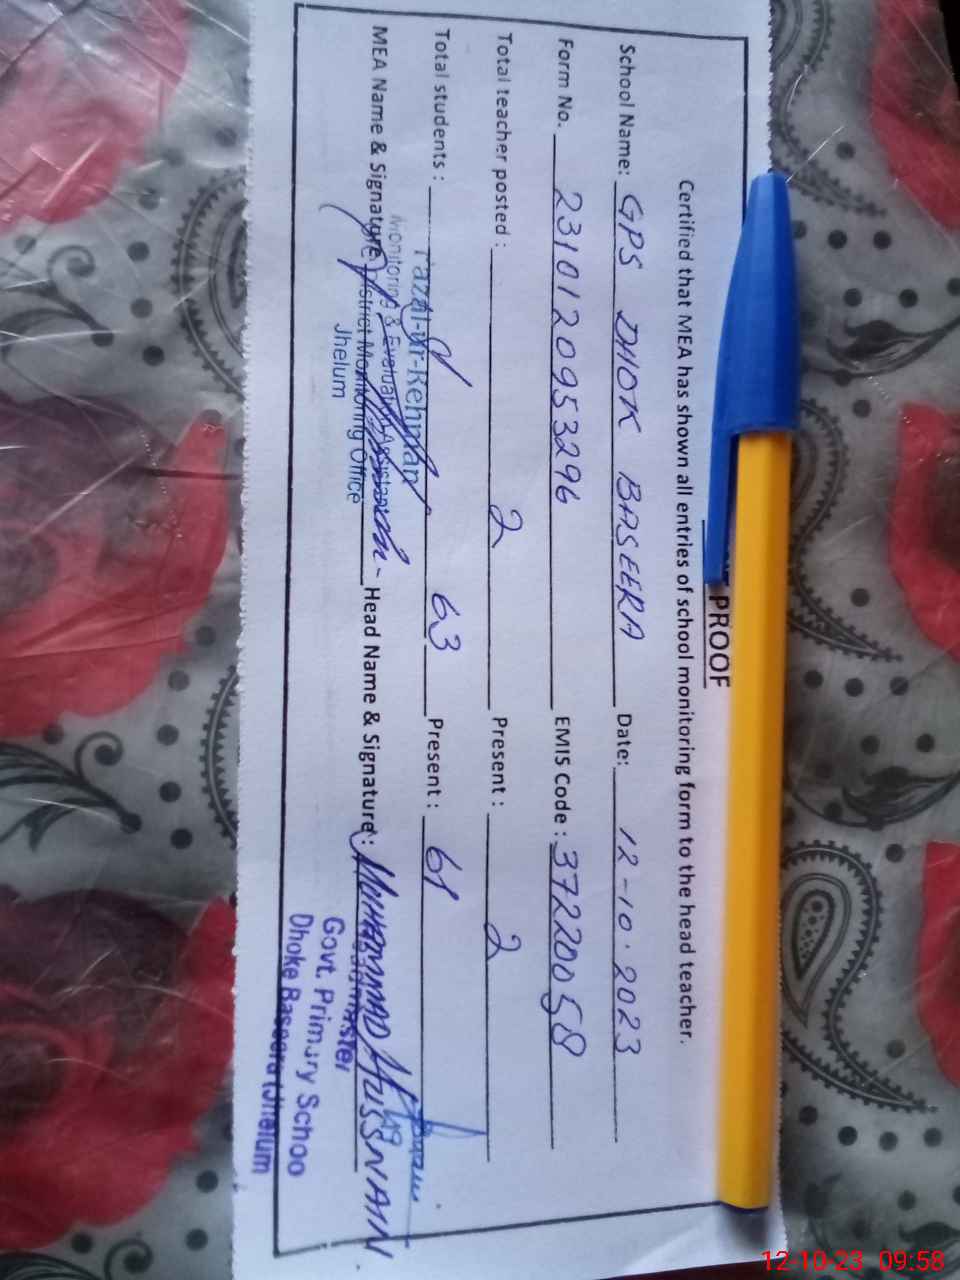 PROOF
Certified that MEA has shown all entries of school monitoring form to the head teacher.
School Name: GPS DHOK BASEERA Date: 12-10-2023
Form No. 2310120953296 EMIS Code: 37220058
Total teacher posted: 2 Present: 2
Total students: 63 Present: 61
MEA Name & Signature Head Name & Signature: MUHAMMAD HUSSNAIN
Fazal-ur-Rehman
Monitoring & Evaluation Assistant
District Monitoring Office
Jhelum
Govt. Primary Schoo
Dhoke Baseera (Jhelum
12-10-23 09:58